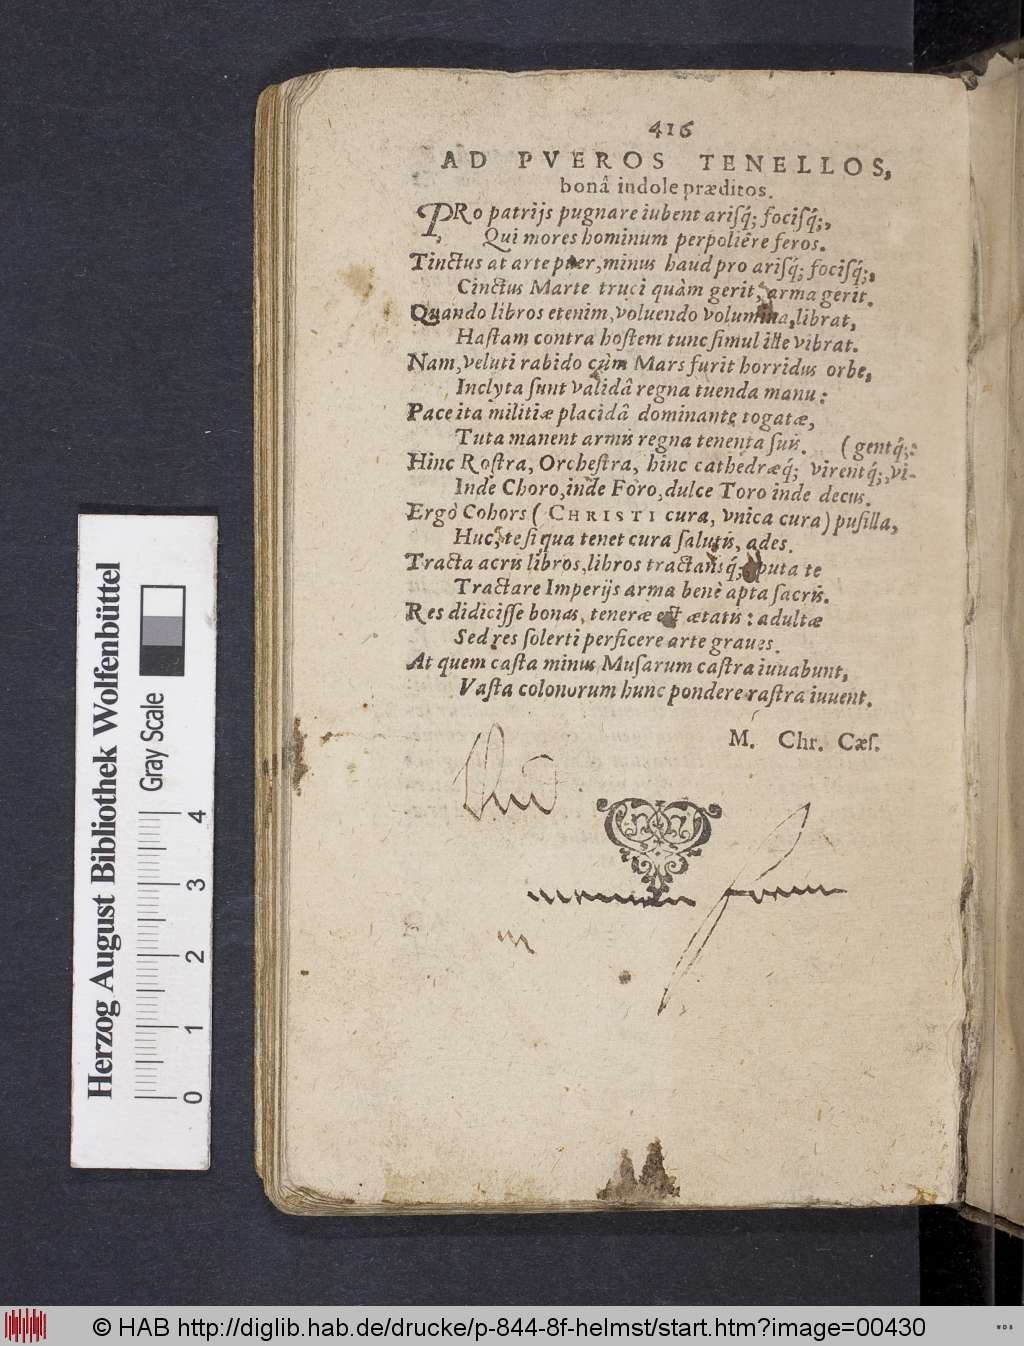 416
AD PVEROS TENELLOS,
bonâ indole præditos.
PRo patrijs pugnare iubent ariſq́; fociſq́;,
Qui mores hominum perpoliêre feros.
Tinctus at arte puer, minus haud pro ariſq́; fociſq́;,
Cinctus Marte truci quàm gerit, arma gerit.
Quando libros etenim, voluendo volumina, librat,
Haſtam contra hoſtem tunc ſimul ille vibrat.
Nam, veluti rabido cùm Mars furit horridus orbe,
Inclyta ſunt validâ regna tuenda manu:
Pace ita militiæ placidâ dominante togatæ,
Tuta manent armis regna tenenta ſuis. (gentq́;:
Hinc Roſtra, Orcheſtra, hinc cathedræq́; virentq́;, vi-
Inde Choro, inde Foro, dulce Toro inde decus.
Ergò Cohors (CHRISTI cura, vnica cura) puſilla,
Huc, te ſi qua tenet cura ſalutis, ades.
Tracta acris libros, libros tractansq́; puta te
Tractare Imperijs arma benè apta ſacris.
Res didiciſſe bonas, teneræ eſt ætatis: adultæ
Sed res ſolerti perficere arte graues.
At quem caſta minus Muſarum caſtra iuuabunt,
Vaſta colonorum hunc pondere raſtra iuuent.
M. Chr. Cæſ.
Herzog August Bibliothek Wolfenbüttel
Gray Scale
0 1 2 3 4
© HAB http://diglib.hab.de/drucke/p-844-8f-helmst/start.htm?image=00430